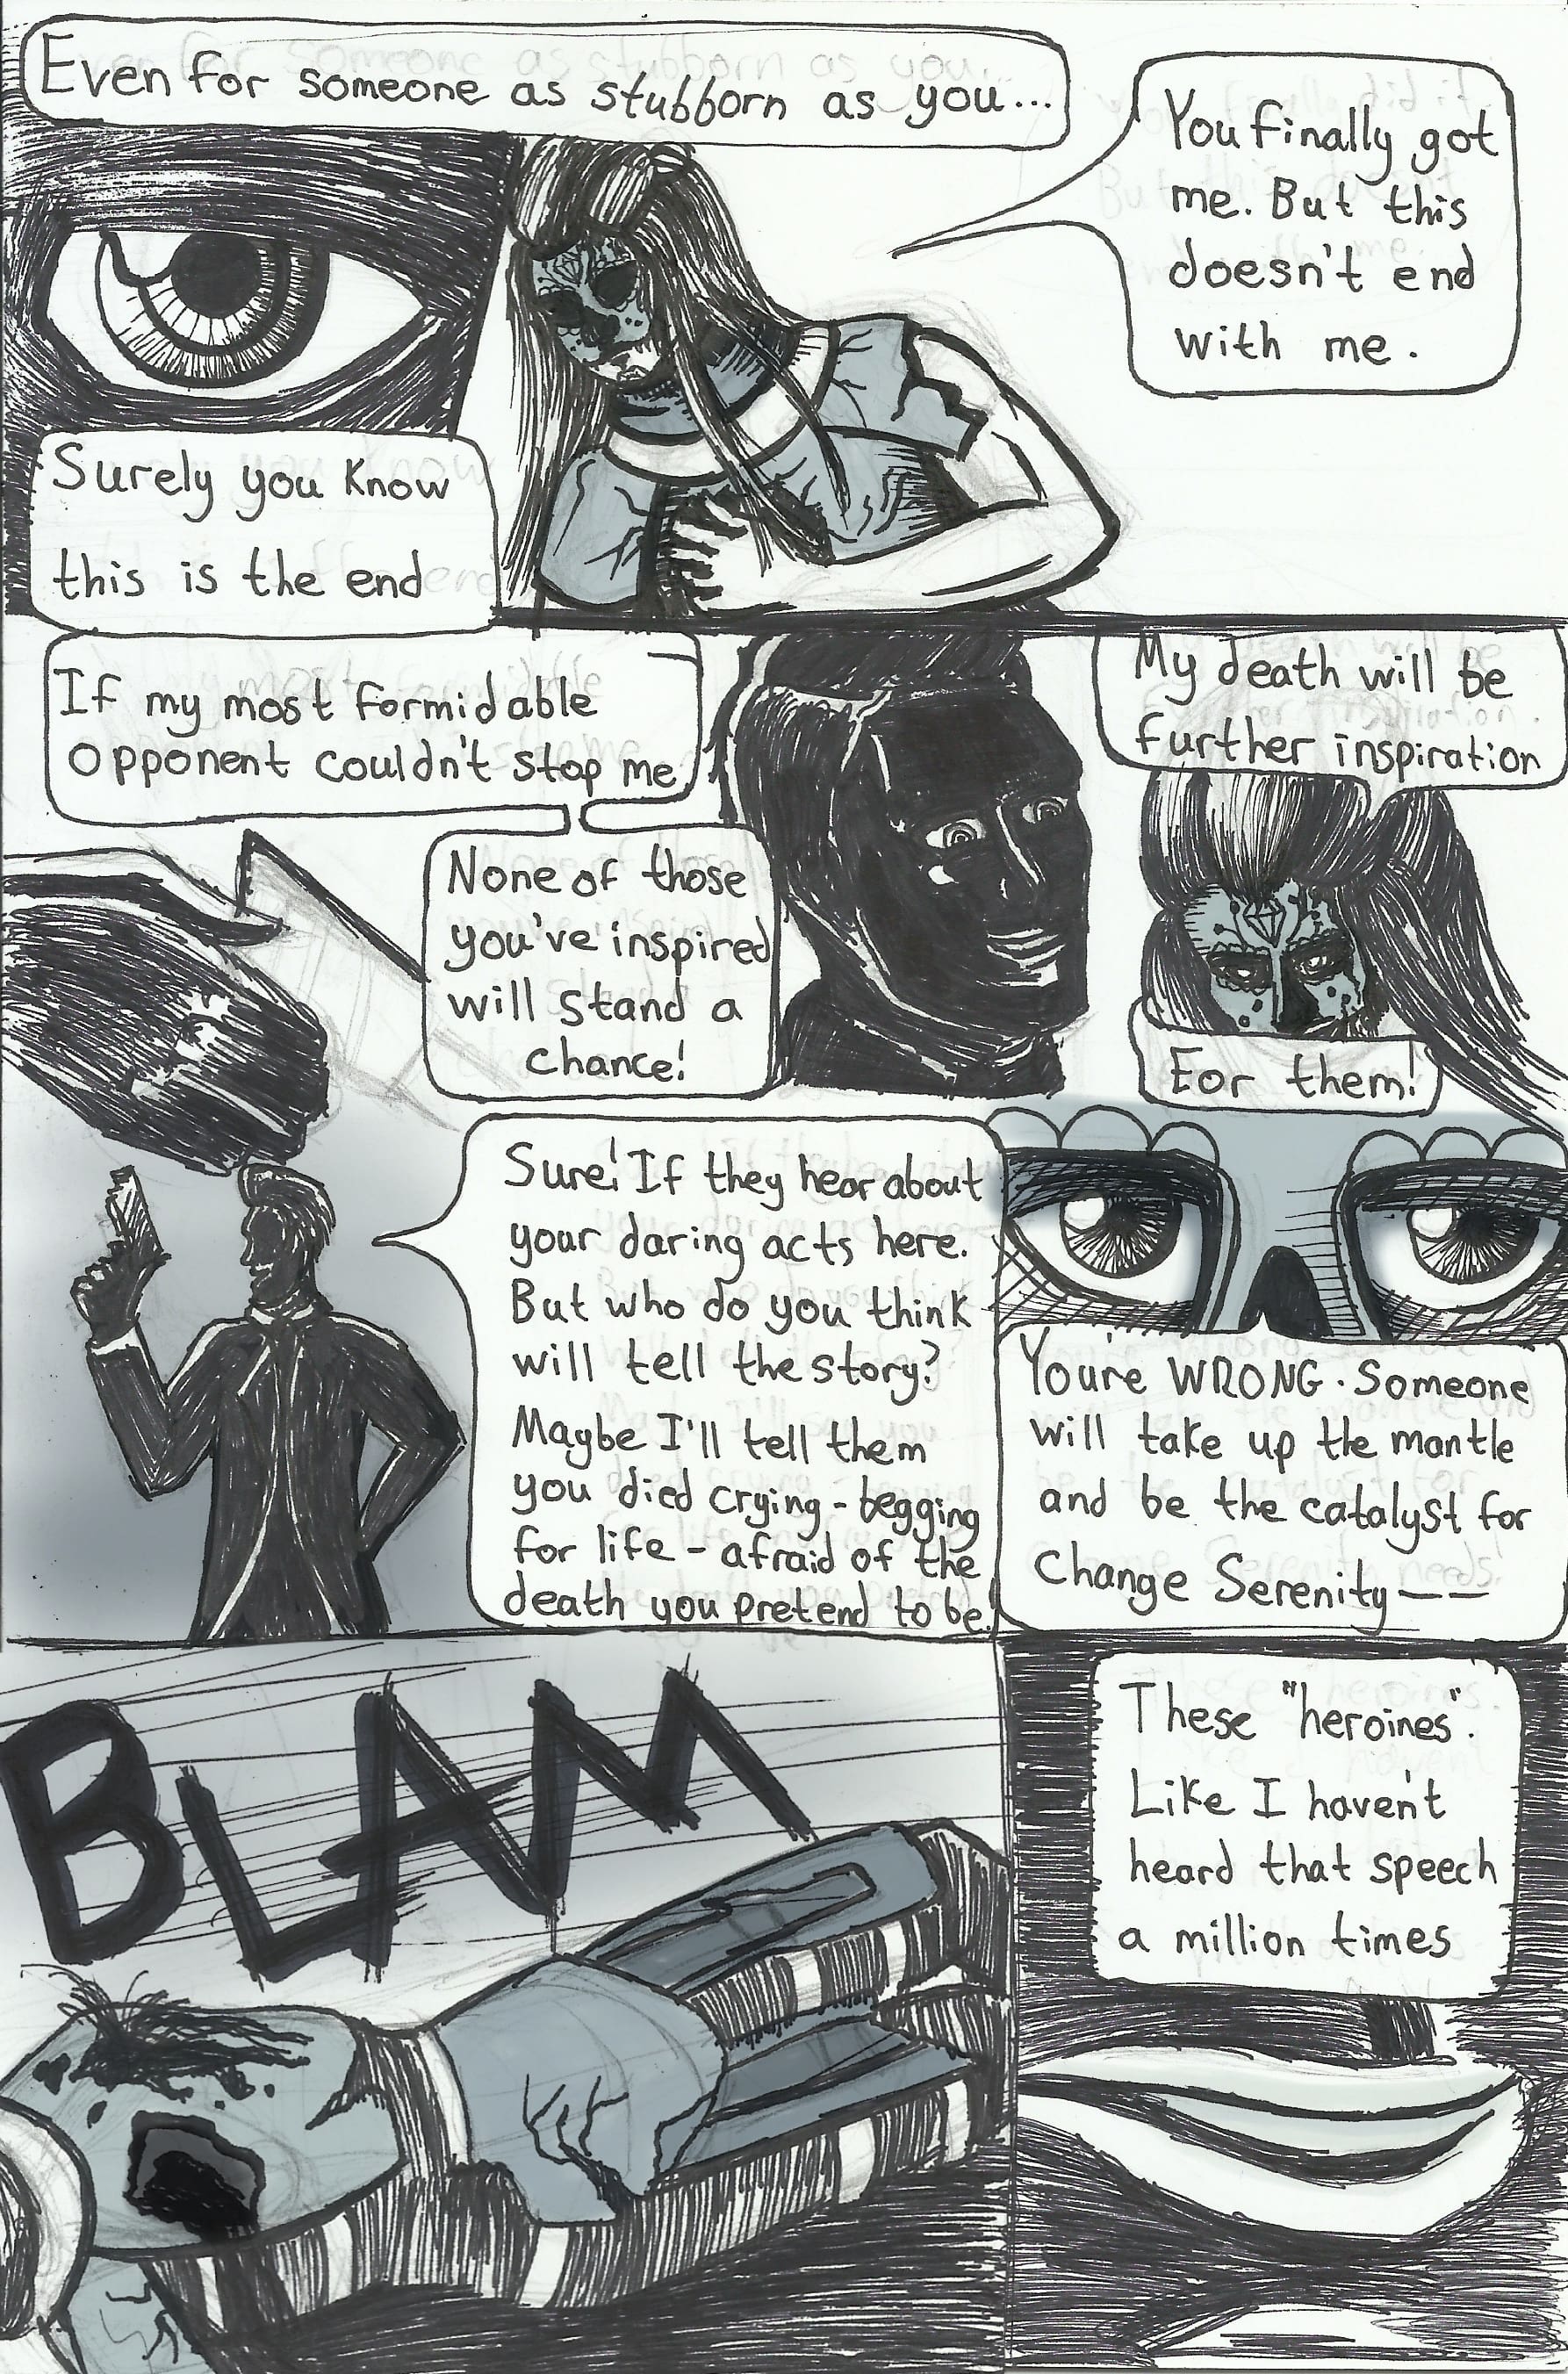 Even for someone as stubborn as you...
Surely you know
this is the end
You finally got
me. But this
doesn't end
with me.
If my most formidable
opponent couldn't stop me
None of those
you've inspired
will stand a
chance!
My death will be
further inspiration
For them!
Sure! If they hear about
your daring acts here.
But who do you think
will tell the story?
Maybe I'll tell them
you died crying - begging
for life - afraid of the
death you pretend to be!
You're WRONG. Someone
will take up the mantle
and be the catalyst for
Change Serenity--
BLAM
These "heroines".
Like I haven't
heard that speech
a million times